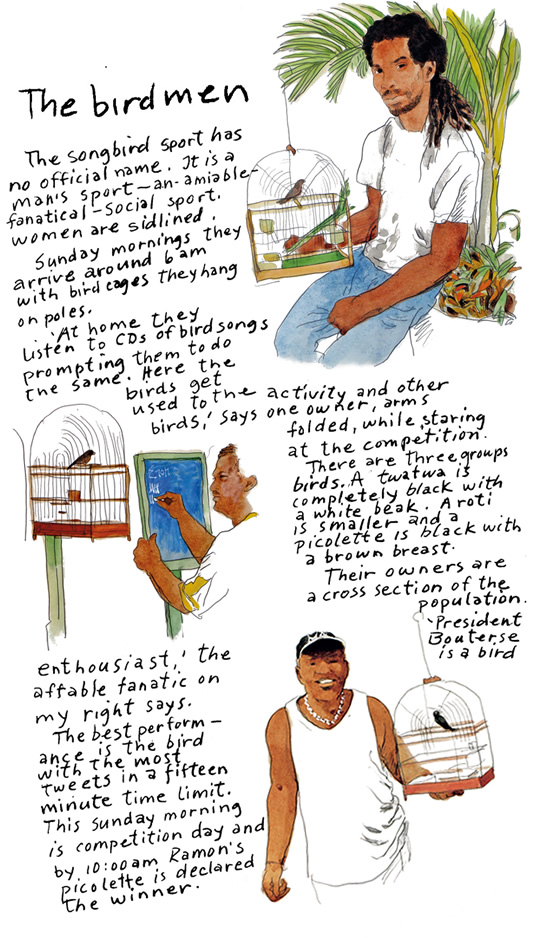 The birdmen
The songbird sport has
no official name. It is a
man's sport — an-amiable-
fanatical-social sport.
women are sidlined.
Sunday mornings they
arrive around 6am
with bird cages they hang
on poles.
'At home they
listen to CDs of bird songs
prompting them to do
the same. Here the
birds get
used to the activity and other
birds,' says one owner, arms
folded, while staring
at the competition.
There are three groups
birds. A twatwa is
completely black with
a white beak. A roti
is smaller and a
picolette is black with
a brown breast.
Their owners are
a cross section of the
population.
'President
Bouterse
is a bird
enthousiast,' the
affable fanatic on
my right says.
The best perform-
ance is the bird
with the most
tweets in a fifteen
minute time limit.
This Sunday morning
is competition day and
by 10:00am Ramon's
picolette is declared
the winner.